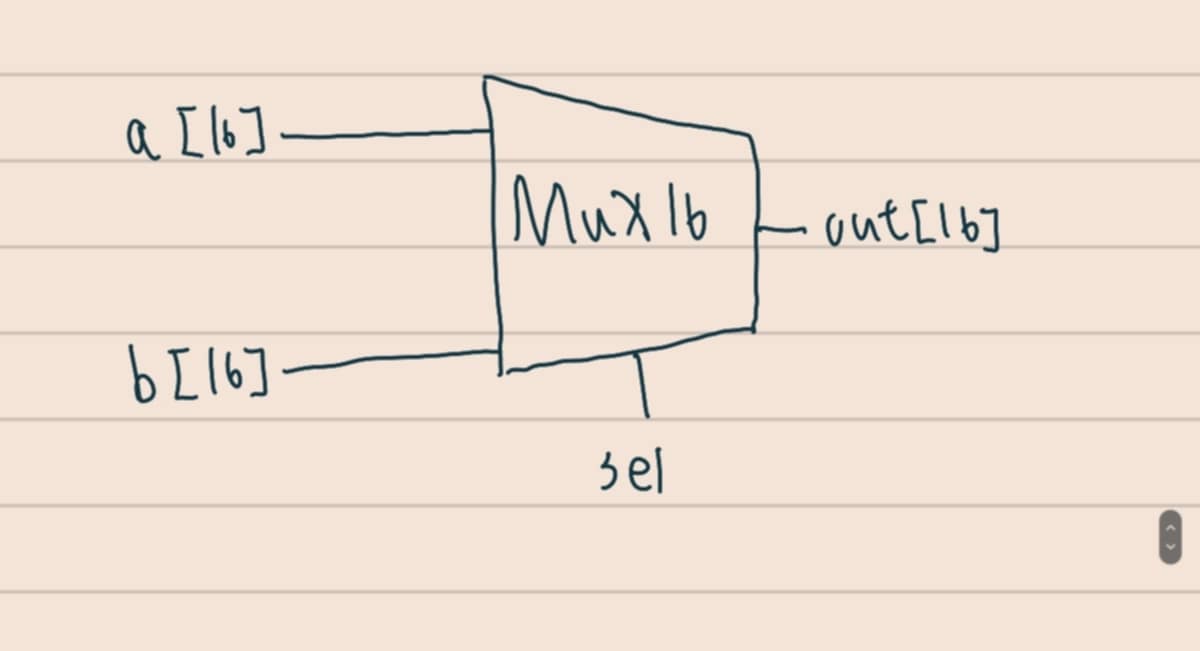 a [16]
Mux16
out[16]
b[16]
sel